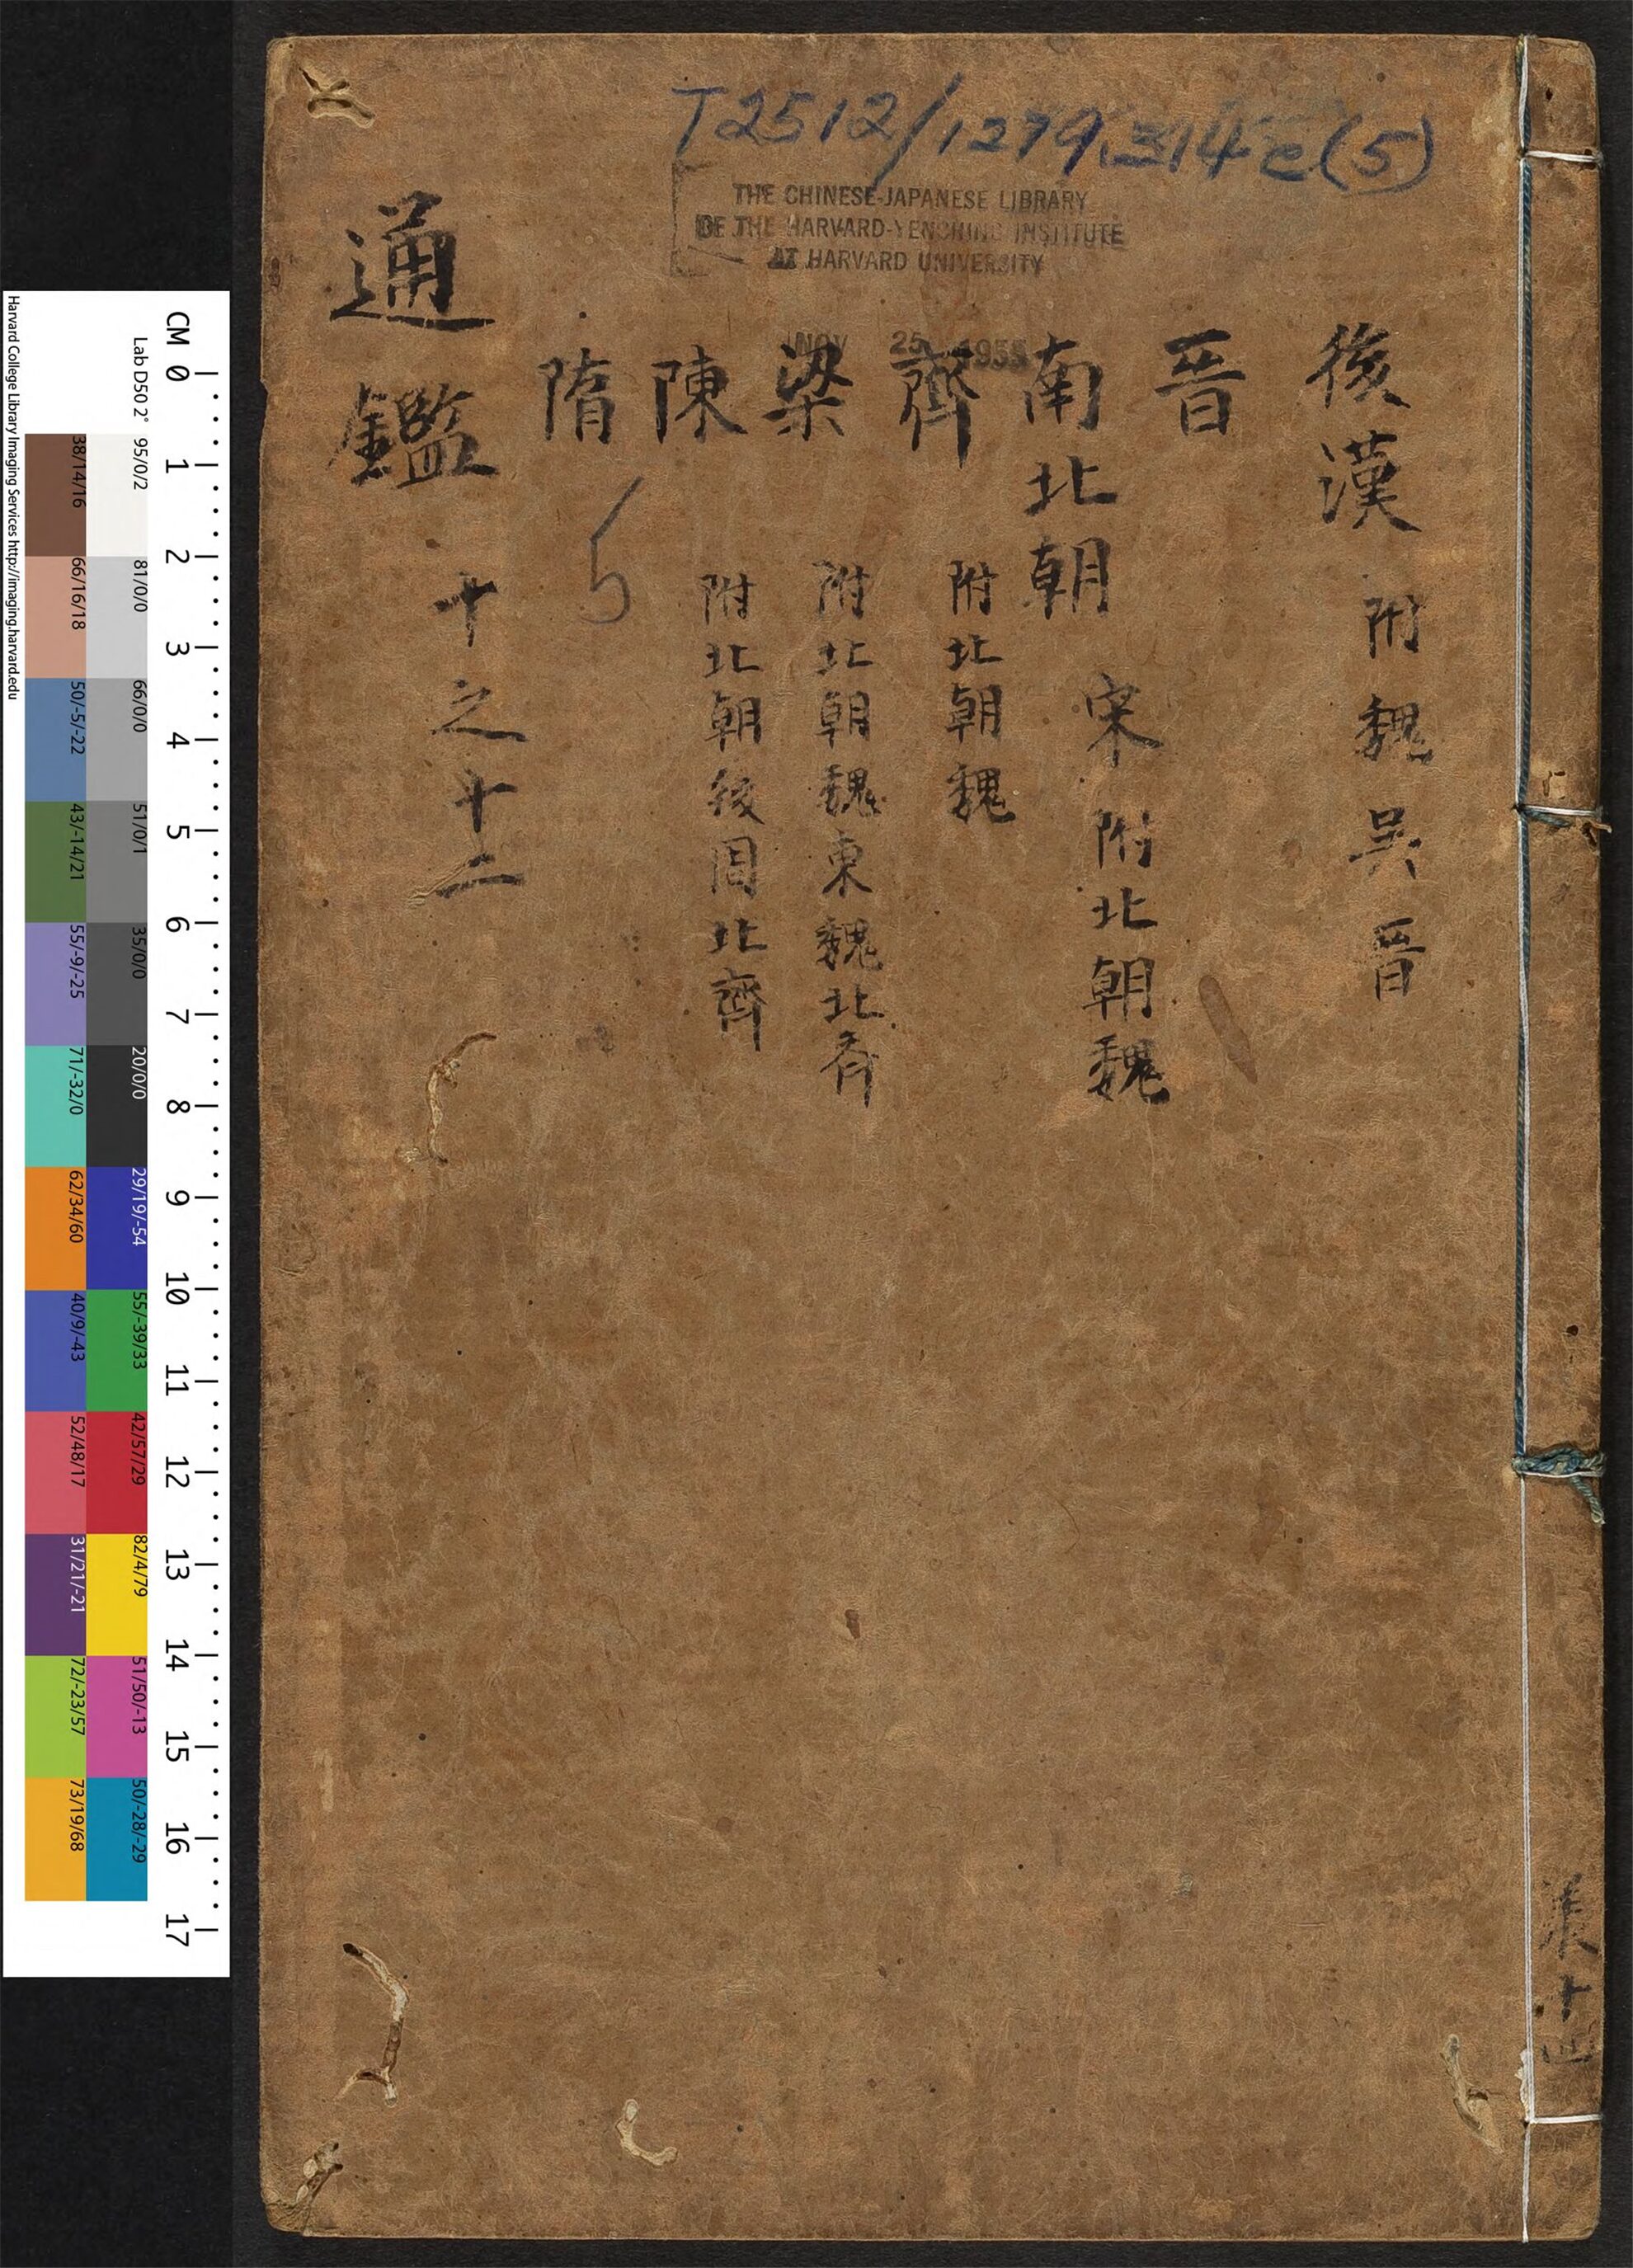 T2512/1279.314e(5)
THE CHINESE-JAPANESE LIBRARY
OF THE HARVARD-YENCHING INSTITUTE
AT HARVARD UNIVERSITY
NOV 25 1955
後漢 附魏吳晉
晉
南北朝 宋 附北朝魏
齊 附北朝魏
梁 附北朝魏東魏北斉
陳 附北朝後周北齊
隋
5
通鑑 十之十二
共十四
CM 0 1 2 3 4 5 6 7 8 9 10 11 12 13 14 15 16 17
Lab D50 2°
95/0/2
81/0/0
66/0/0
51/0/1
35/0/0
20/0/0
29/19/-54
55/-39/33
42/57/29
82/4/79
51/50/-13
50/-28/-29
38/14/16
66/16/18
50/-5/-22
43/-14/21
55/-9/-25
71/-32/0
62/34/60
40/9/-43
52/48/17
31/21/-21
72/-23/57
73/19/68
Harvard College Library Imaging Services http://imaging.harvard.edu